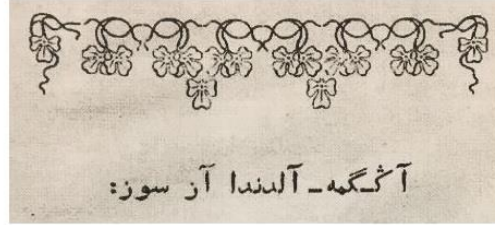 آڭـگمه ـ آلدندا آز سوز: